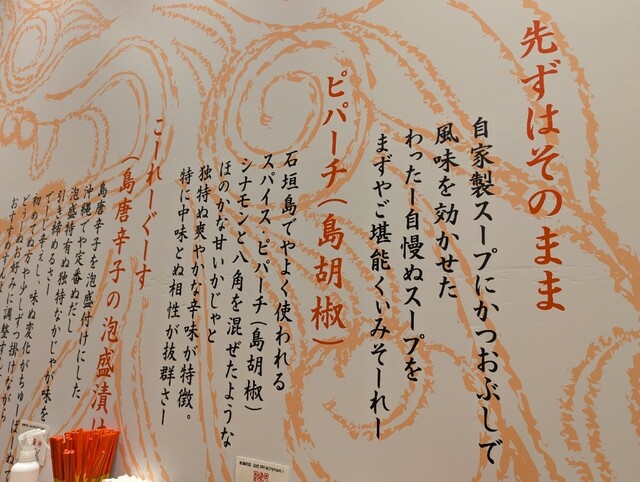 先ずはそのまま
自家製スープにかつおぶしで
風味を効かせた
わったー自慢ぬスープを
まずやご堪能くぃみそーれー
ピパーチ(島胡椒)
石垣島でやよく使われる
スパイス・ピパーチ(島胡椒)
シナモンと八角を混ぜたような
ほのかな甘いかじゃと
独特ぬ爽やかな辛味が特徴。
特に中味とぬ相性が抜群さー
こーれーぐーす
(島唐辛子の泡盛漬け
島唐辛子を泡盛付けにした
沖縄でや定番ぬだし
泡盛特有ぬ独特なかじゃが味を
引き締めるさー
でーじ辛えし、味ぬ変化がちゅーばー
初めてぬ方や少しずつ掛けながら
お好みに調整す